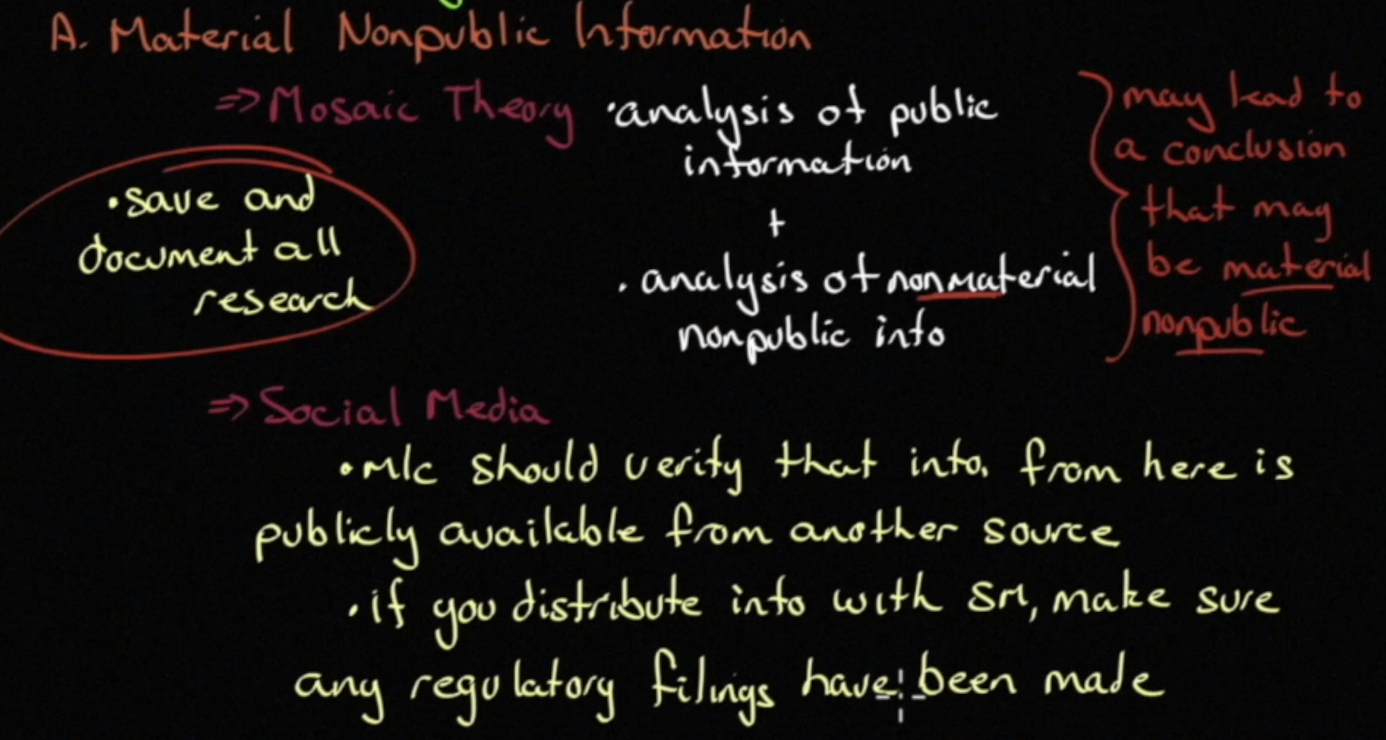 A. Material Nonpublic Information
⇒ Mosaic Theory
• analysis of public
information
+
• analysis of nonmaterial
nonpublic info
may lead to
a conclusion
that may
be material
nonpublic
• save and
document all
research
⇒ Social Media
• M/c should verify that info. from here is
publicly available from another source
• if you distribute info with SM, make sure
any regulatory filings have been made